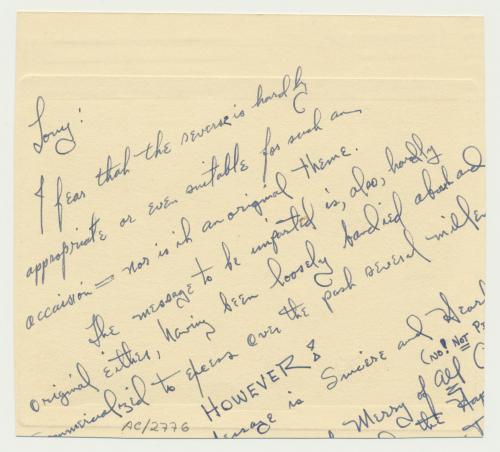 Tony:
I fear that the reverse is hardly
appropriate or even suitable for such an
occaision — nor is it an original theme.
The message to be imparted is, also, hardly
original either, having been loosely bandied about and
commercialized to excess over the past several millen
HOWEVER:
message is Sincere and Heart
Merry of All
(NO! NOT PE
the Hap
AC/2776